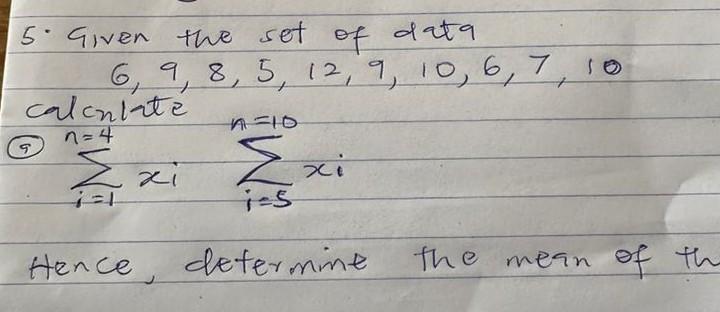 5. Given the set of data
6, 9, 8, 5, 12, 9, 10, 6, 7, 10
calculate
(a) n=4 ∑ i=1 xi n=10 ∑ i=5 xi
Hence, determine the mean of th